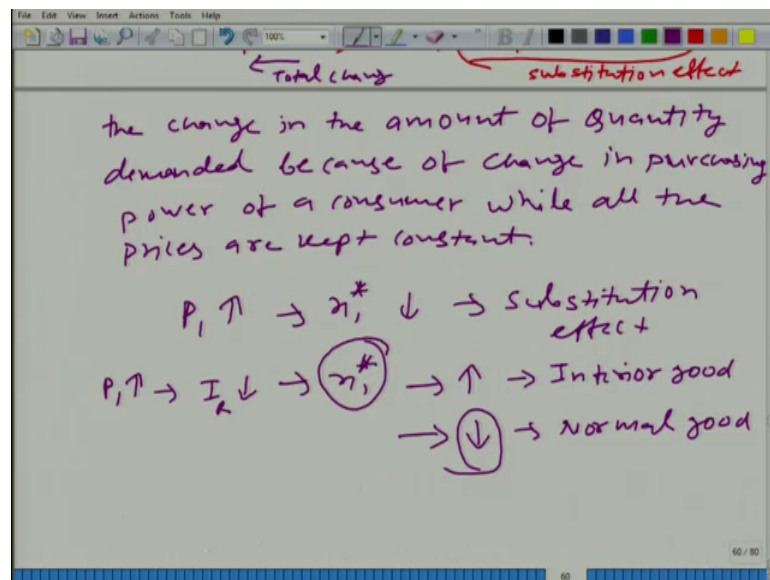 File Edit View Insert Actions Tools Help
100%
Total chang
substitution effect
the change in the amount of Quantity
demanded because of change in purchasing
power of a consumer while all the
prices are kept constant.
P₁ ↑ → x₁* ↓ → substitution
effect
P₁ ↑ → I_R ↓ → x₁* → ↑ → Inferior good
→ ↓ → Normal good
60 / 80
60